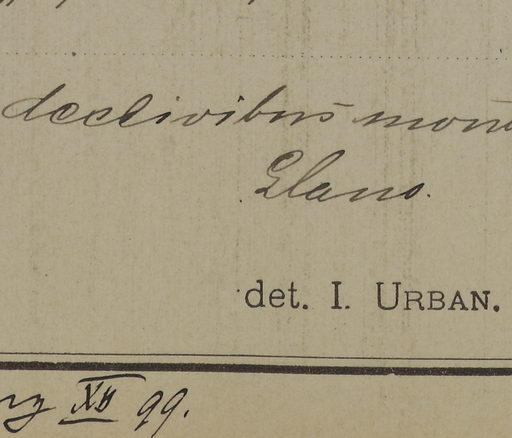 declivibus mon
Llano.
det. I. URBAN.
XII 99.